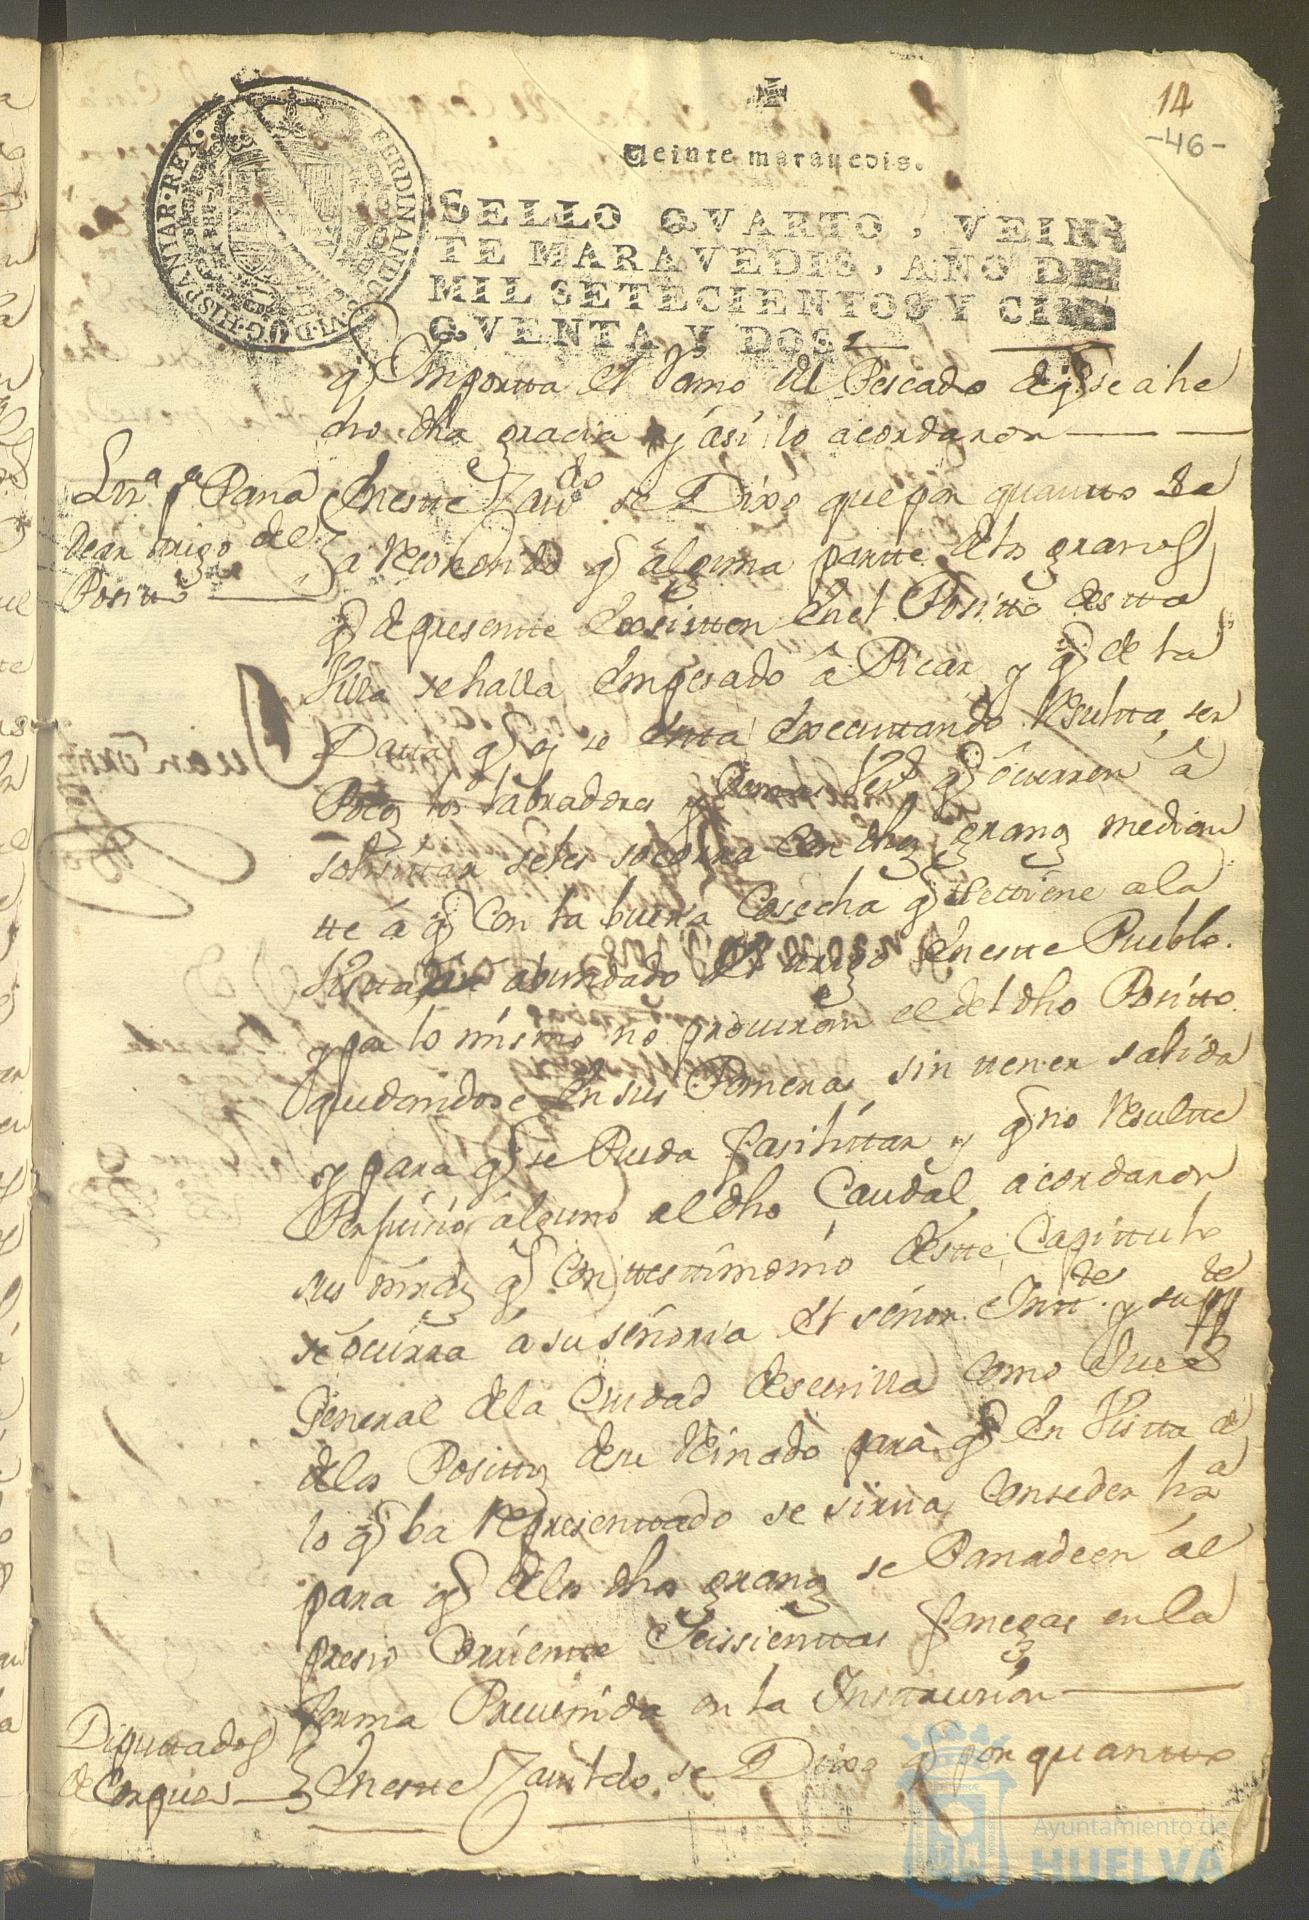 14
-46-
Veinte maravedis.
FERDINANDUS·VI·D·G·HISPANIAR·REX·
SELLO QVARTO, VEIN
TE MARAVEDIS, AÑO DE
MIL SETECIENTOS Y CIN
QVENTA Y DOS.
q̃ Importta el Ramo del Pescado de q̃ se a he
cho dha gracia y así lo acordaron
Lizª pª Pana
dear trigo del
Positto
En estte Cavdo se Dixo que por quantto se
a reconosido q̃ alguna partte delos granos
q̃ depresentte Exsistten En el Positto destta
Villa se halla Empesado â Picar y q̃ de la
Datta q̃ se estta Executtando Resultta, ser
Pocos los labradores y demas Vesos q̃ ôcurren â
solisittar seles socorra con dhos granos median
tte â q̃ Con la buena Cosecha q̃ se ttiene ala
Vistta, abundado El trigo En estte Pueblo.
y por lo mismo no procuran el del dho Positto
quedandose En sus Paneras sin ttener salida
y para q̃ se Pueda fasilittar y q̃ no Resultte
Perjuicio alguno al dho Caudal, acordaron
sus mrds q̃ Con ttesttimonio destte Capittulo
se ôcurra â su señoria El señor Inttte y supptte
General dela Ciudad de sevilla como Juez
delos Posittos de su Reinado para q̃ En Vistta de
lo q̃ ba Representtado se sirva, Conseder lizª
para q̃ delos dhos granos se Panadeen al
presio Corrientte Seissienttas fanegas en la
forma Prevenida en la Insttrucion
Diputtados
de Corpus
En estte Cavildo se Dixo q̃ por quantto
Ayuntamiento de
HUELVA